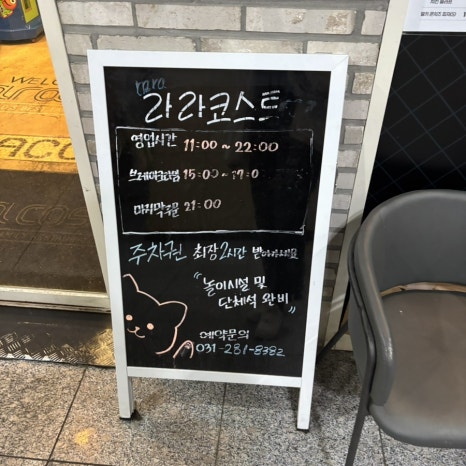 WELCOME
rara
라라코스트
영업시간 11:00 ~ 22:00
브레이크타임 15:00 ~ 17:0
마지막주문 21:00
주차권 최장2시간 받아가세요
"놀이시설 및
단체석 완비"
예약문의
031-281-8382